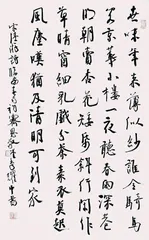 世味年來薄似紗誰令騎馬
客京華小樓一夜聽春雨深巷
明朝賣杏花矮紙斜行閒作
草晴窗細乳戲分茶素衣莫起
風塵嘆猶及清明可到家